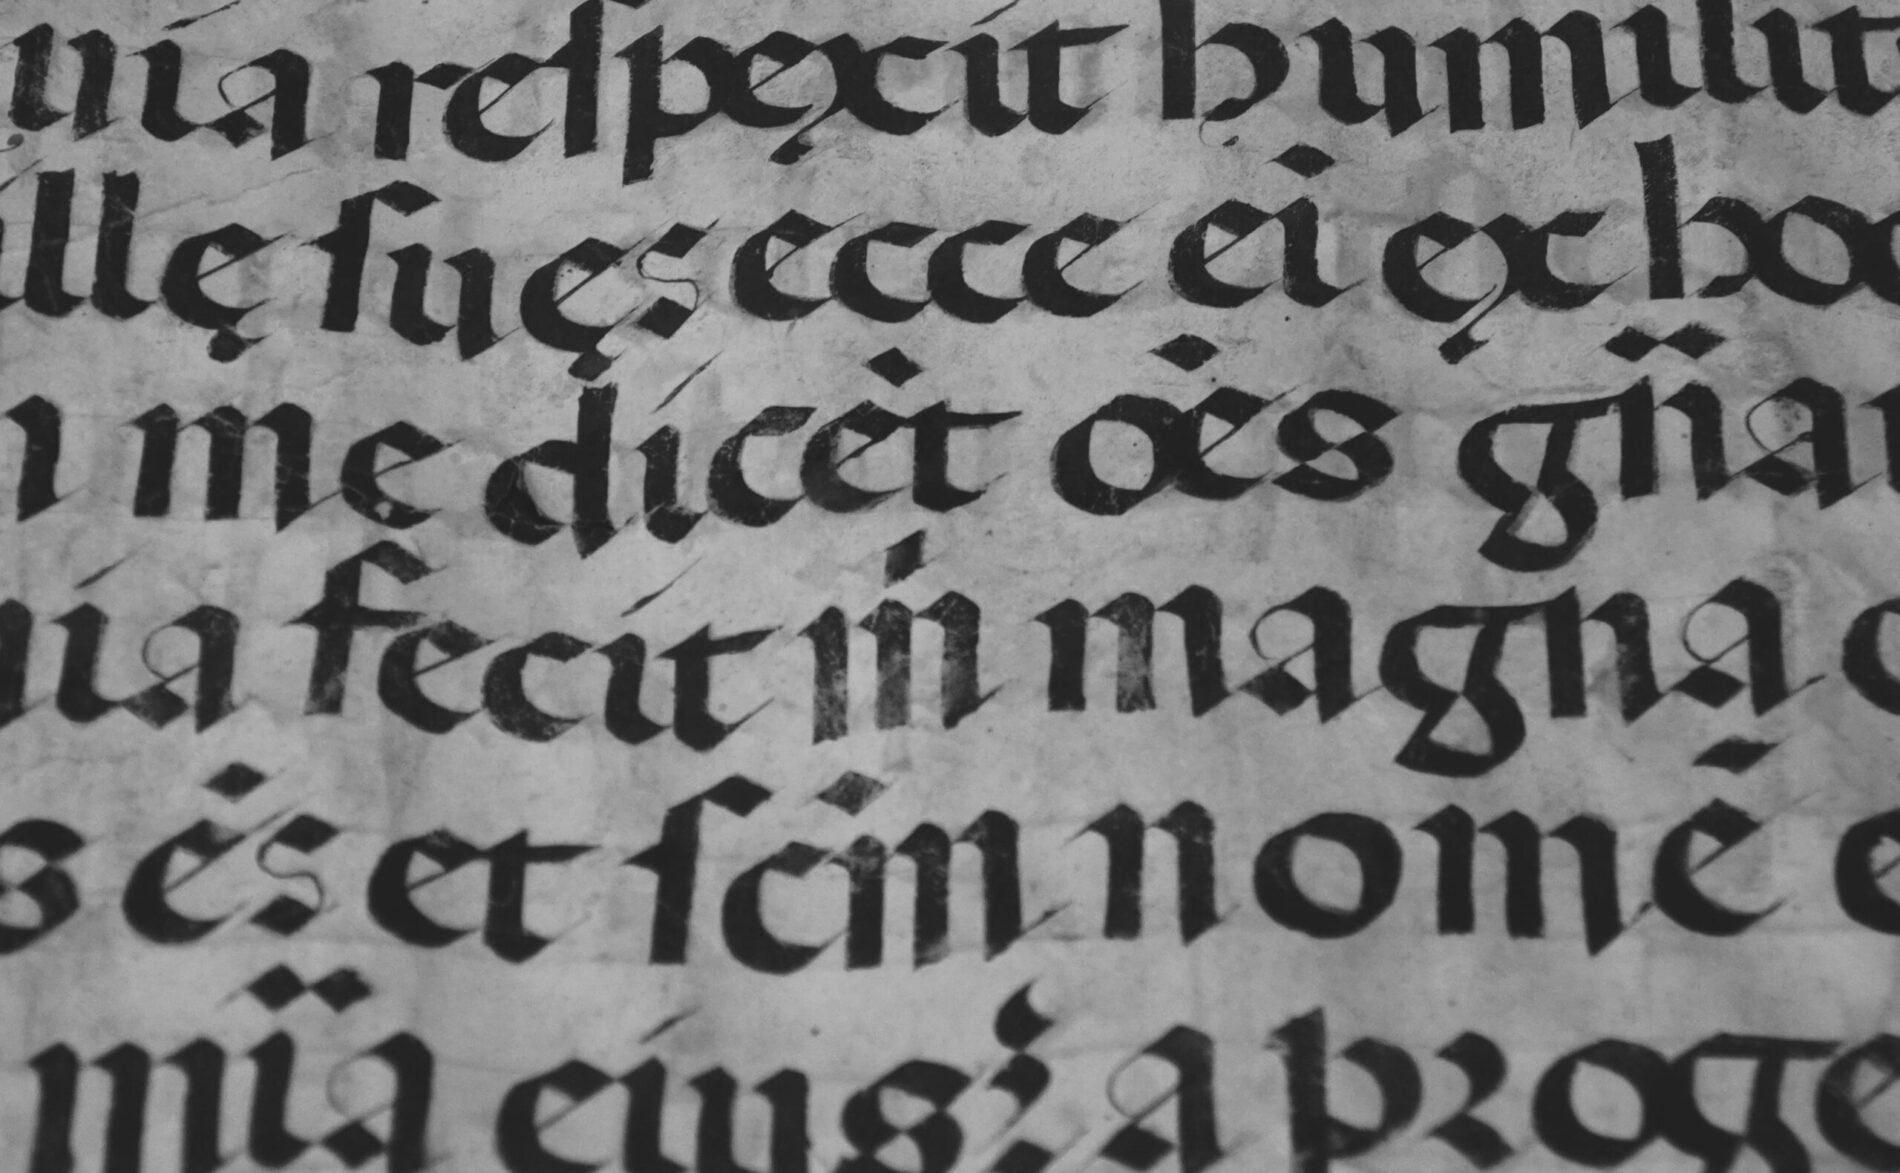 uia reſpęxit humilit
illę ſuęs ecce ei̇ ęx ho
me dicėt oės gn̈a
uia fecit m̍ magna
s ės et ſcṁ nomē e
mïa eius; a proge